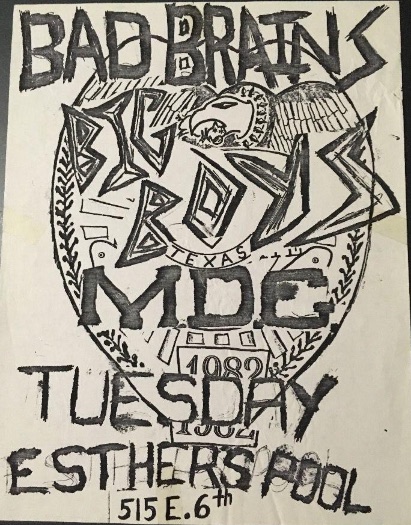 BAD BRAINS
BIG
BOYS
TEXAS
M.D.C
1982
TUESDAY
1982
ESTHER'S POOL
515 E. 6th